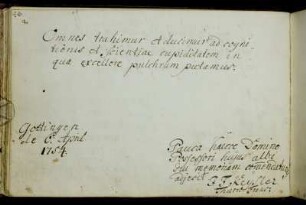 Omnes trahimur et ducimur ad cogni
tionis et scientiae cupiditatem in
qua excellere pulchrum putamus.
Gottingen
de 6. April
1754.
Pauca haece Domino
Possessori hujus albi
in memoriam
adjecit